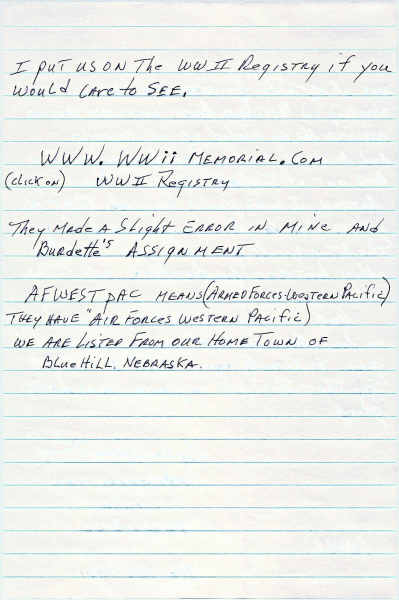 I put us on the WWII Registry if you
would care to SEE.
WWW. WWii MEMORIAL.COM
(click on) WWII Registry
They Made A Slight ERROR IN MINE AND
Burdette's ASSIGNMENT
AFWESTPAC MEANS (ARMED FORCES WESTERN PACIFIC)
THEY HAVE "AIR FORCES WESTERN PACIFIC)
WE ARE LISTED FROM OUR HOME TOWN OF
BLUE HILL, NEBRASKA.